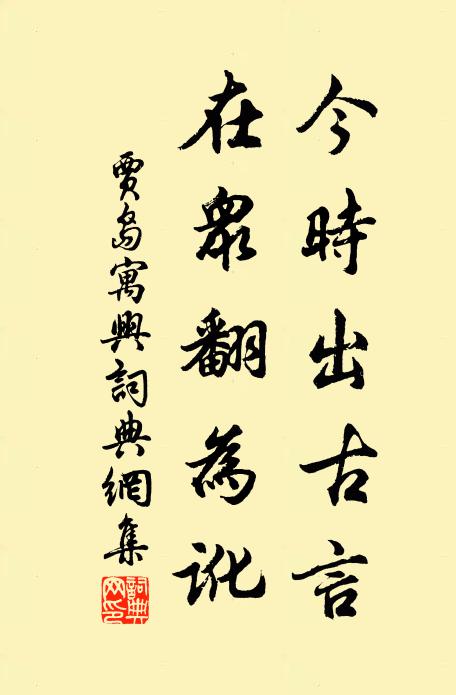 今時出古言
在眾翻為訛
賈島寓興詞典網集
詞典網印